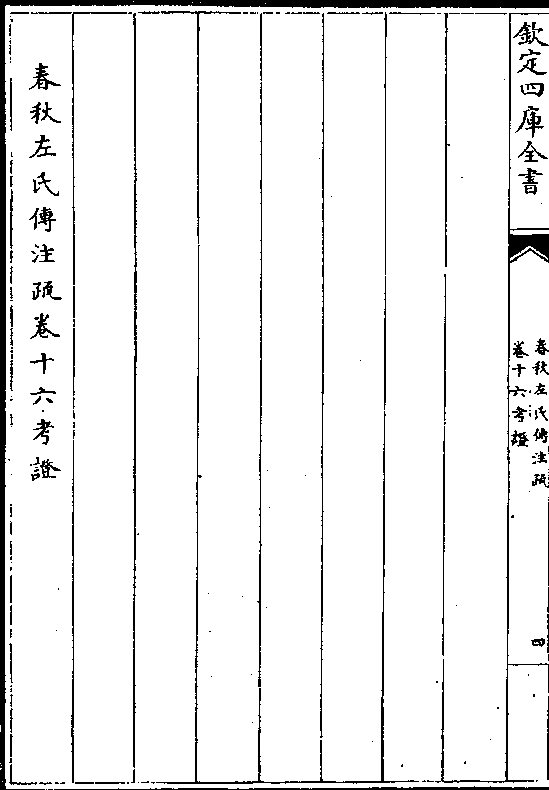 欽定四庫全書
春秋左氏傳注疏
卷十六考證
四
春秋左氏傳注疏卷十六考證